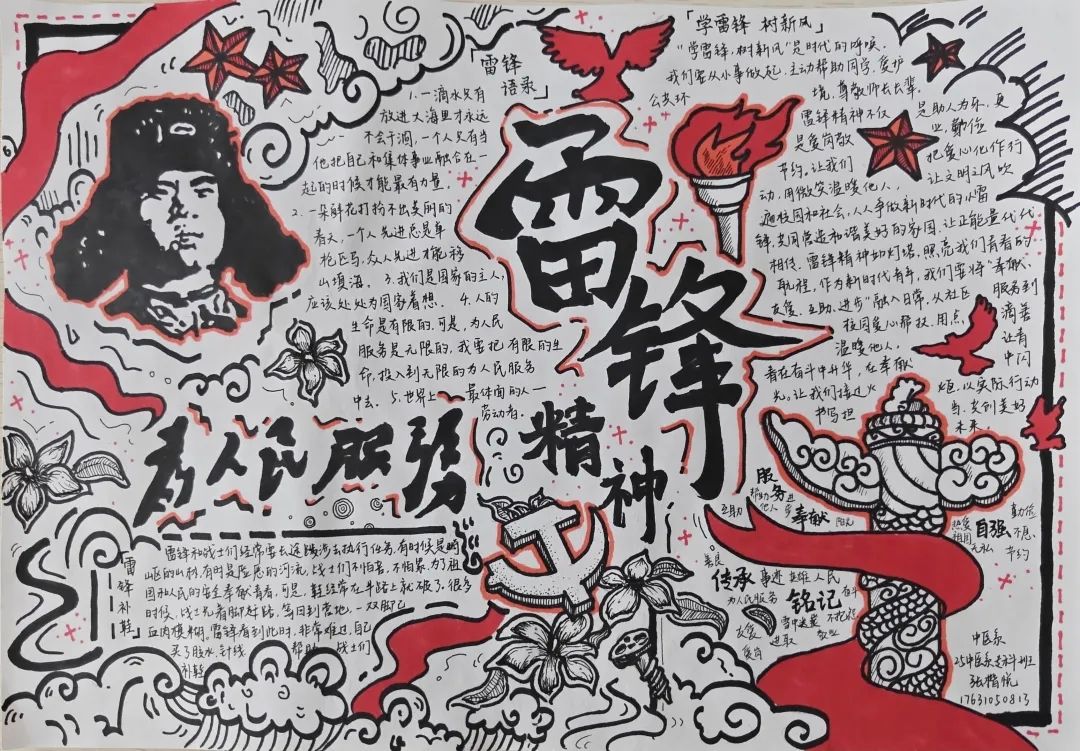 「雷锋
语录」
1.一滴水只有
放进大海里才永远
不会干涸,一个人只有当
他把自己和集体事业融合在一
起的时候才能最有力量。
2.一朵鲜花打扮不出美丽的
春天,一个人先进总是单
枪匹马,众人先进才能移
山填海。3.我们是国家的主人,
应该处处为国家着想。4.人的
生命是有限的,可是,为人民
服务是无限的,我要把有限的生
命,投入到无限的为人民服务
中去。5.世界上最体面的人一
劳动者。
雷锋
精神
为人民服务
「学雷锋 树新风」
“学雷锋,树新风”是时代的呼唤。
我们要从小事做起,主动帮助同学,爱护
公共环境,尊敬师长长辈。
雷锋精神不仅是助人为乐,更
是爱岗敬业,勤俭
节约。让我们把爱心化作行
动,用微笑温暖他人,让文明之风吹
遍校园和社会,人人争做新时代的小雷
锋,共同营造和谐美好的家园,让正能量代代
相传。雷锋精神如灯塔,照亮我们青春的
航程,作为新时代青年,我们要将“奉献、
友爱、互助、进步”融入日常,从社区服务到
校园爱心帮扶,用点滴善
温暖他人,让青
春在奋斗中升华,在奉献中闪
光。让我们接过火炬,以实际行动
书写担当,共创美好
未来。
「雷锋补鞋」
雷锋和战士们经常要长途跋涉去执行任务,有时候是崎
岖的山林,有时是险恶的河流,战士们不怕苦,不怕累,为了祖
国和人民的安全奉献着,可是,鞋经常在半路上就破了,很多
时候,战士光着脚赶路,等回到营地,一双脚已
血肉模糊,雷锋看到此时,非常难过,自己
买了胶水,针线帮助战士们
补鞋
服务
帮助他人
进步
互助
奉献
阳光
善良
传承
事迹
英雄
人民
为人民服务
铭记
奋斗
不抱怨
雪中送炭
友爱
进取
敬业
爱岗
热爱祖国
自强
不息
无私
勤俭
节约
中医系
25中医系本科班
张楷悦
17631050813